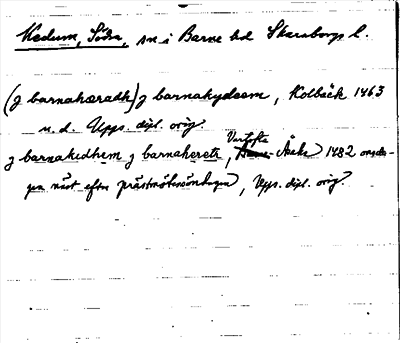 Kedum, Södra, sn i Barne hd Skaraborgs l.
(j barnahæradh) j barnakydeem, Kolbäck 1463
u. d. Upps. dipl. orig.
Vartofta
j barnakidhem j barnaheretz, -Åsaka 1482 onsda-
gen näst efter prästmötessöndagen, Upps. dipl. orig.